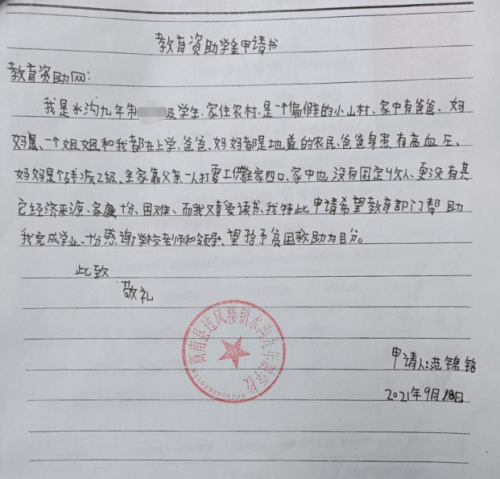 教育资助学金申请书
教育资助网:
我是水沟九年制 级学生、家住农村、是一个偏僻的小山村、家中有爸爸、妈
妈、一个姐姐和我都在上学、爸爸、妈妈都是地道的农民、爸爸身患有高血压、
妈妈是个残疾2级、全家靠父亲一人打工 家四口、家中也没有固定收入、更没有其
它经济来源、家庭十份困难、而我又喜爱读书、我特此申请希望教育部门帮助
我完成学业、十份感谢学校老师和领导、望给予贫困救助为目分。
此致
敬礼
商南县过风楼镇水沟九年制学校
申请人:范锦铭
2021年9月18日